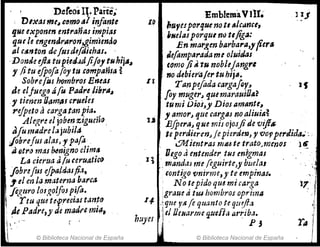 Defeos II. Parte.
Dexasme, como al infante
que exponen entrañas impias
que le engendraron, gimiendo
al canton de sus desdichas.
Donde esta tu piedad, si soy tu hija,
y si tu esposa soy tu compañia?
Sobre sus hombros Eneas
de el fuego á su Padre libra,
y tienen llamas crueles
respeto à carga tan pia.
Alegre el joben ziguerio
à su madre la jubila
sobre sus alas, y passa
à otro mas benigno clima
La cierua à su ceruatico
sobre sus espaldas fia,
y el en la materna barca
seguro los golfos pisa.
Tu que te precias tanto
de Padre, y de madre mia,
huyes
10
11
12
13
14
Emblema VIII.
huyes porque no te alcance,
buelas porque no te siga:
En margen barbara, y fiera
desamparada me oluidas
como si à tu noble sangre
no debiera ser tu hija.
Tan pesada carga soy,
soy muger, que marauilla?
tu mi Dios, y Dios amante,
y amor, que cargas no anima?
Espera, que mis ojos si de vista
te perdieren, se pierden, y voy perdida.
Mientras mas te trato, menos
llego à entender tus enigmas
mandas me seguirte, y buelas
contigo vnirme, y te empinas.
No te pido que mi carga
graue à tus hombros oprima
que ya se quanto te questa
el lleuarme questa arriba.
P 3
Ya
15
16
17
© Biblioteca Nacional de España
© Biblioteca Nacional de España